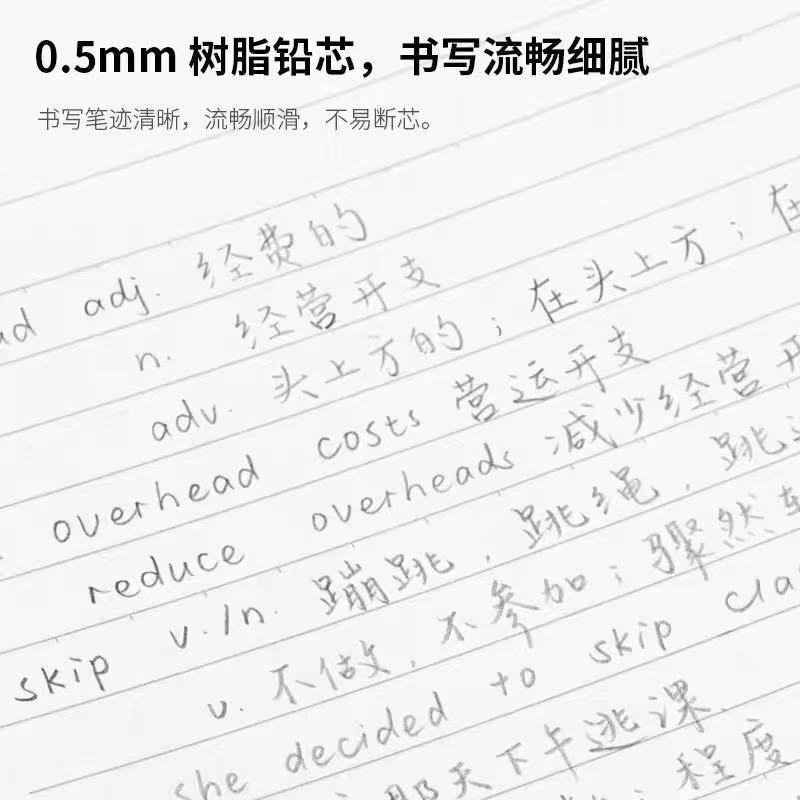 0.5mm 树脂铅芯，书写流畅细腻
书写笔迹清晰，流畅顺滑，不易断芯。
ad adj. 经费的
n. 经营开支
adv. 头上方的；在头上方；在
overhead costs 营运开支
reduce overheads 减少经营开
skip v./n. 蹦跳，跳绳，跳
v. 不做，不参加；骤然
she decided to skip cla
那天下午逃课
程度